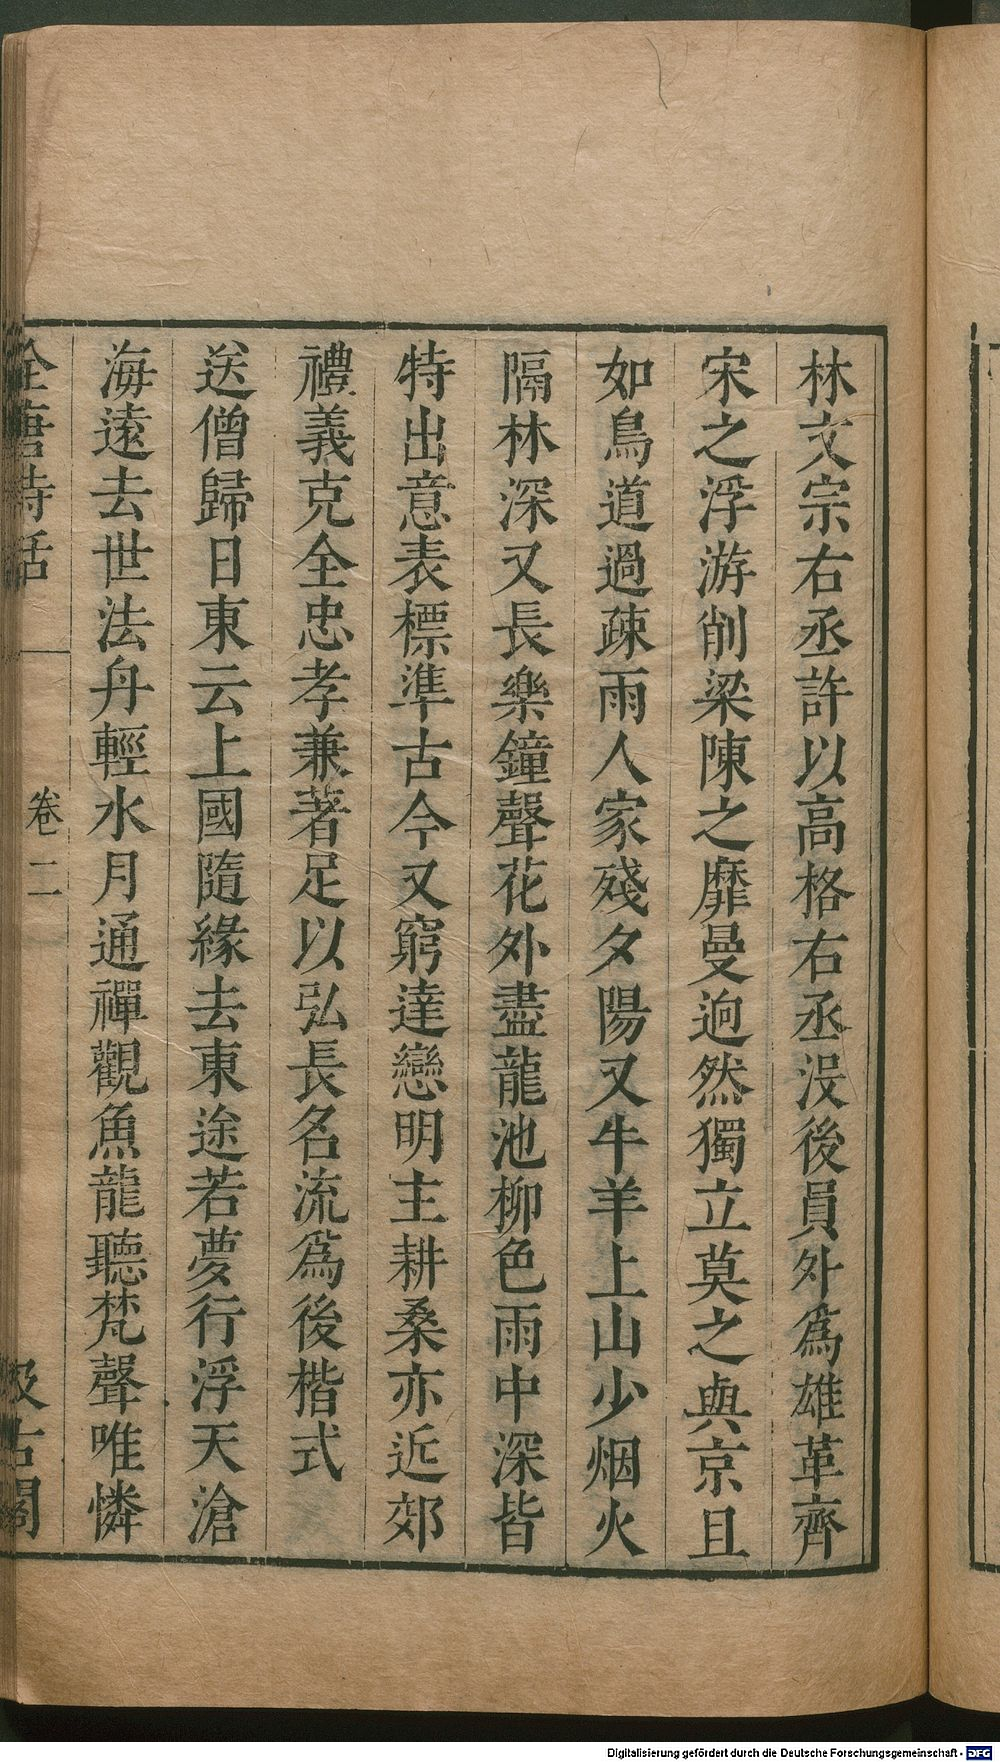 林文宗右丞許以高格右丞没後員外爲雄革齊
宋之浮游削梁陳之靡曼迥然獨立莫之與京且
如鳥道過疎雨人家殘夕陽又牛羊上山少烟火
隔林深又長樂鐘聲花外盡龍池柳色雨中深皆
特出意表標準古今又窮達戀明主耕桑亦近郊
禮義克全忠孝兼著足以弘長名流爲後楷式
送僧歸日東云上國隨緣去東途若夢行浮天滄
海遠去世法舟輕水月通禪觀魚龍聽梵聲唯憐
全唐詩話 卷二 汲古閣
Digitalisierung gefördert durch die Deutsche Forschungsgemeinschaft - DFG